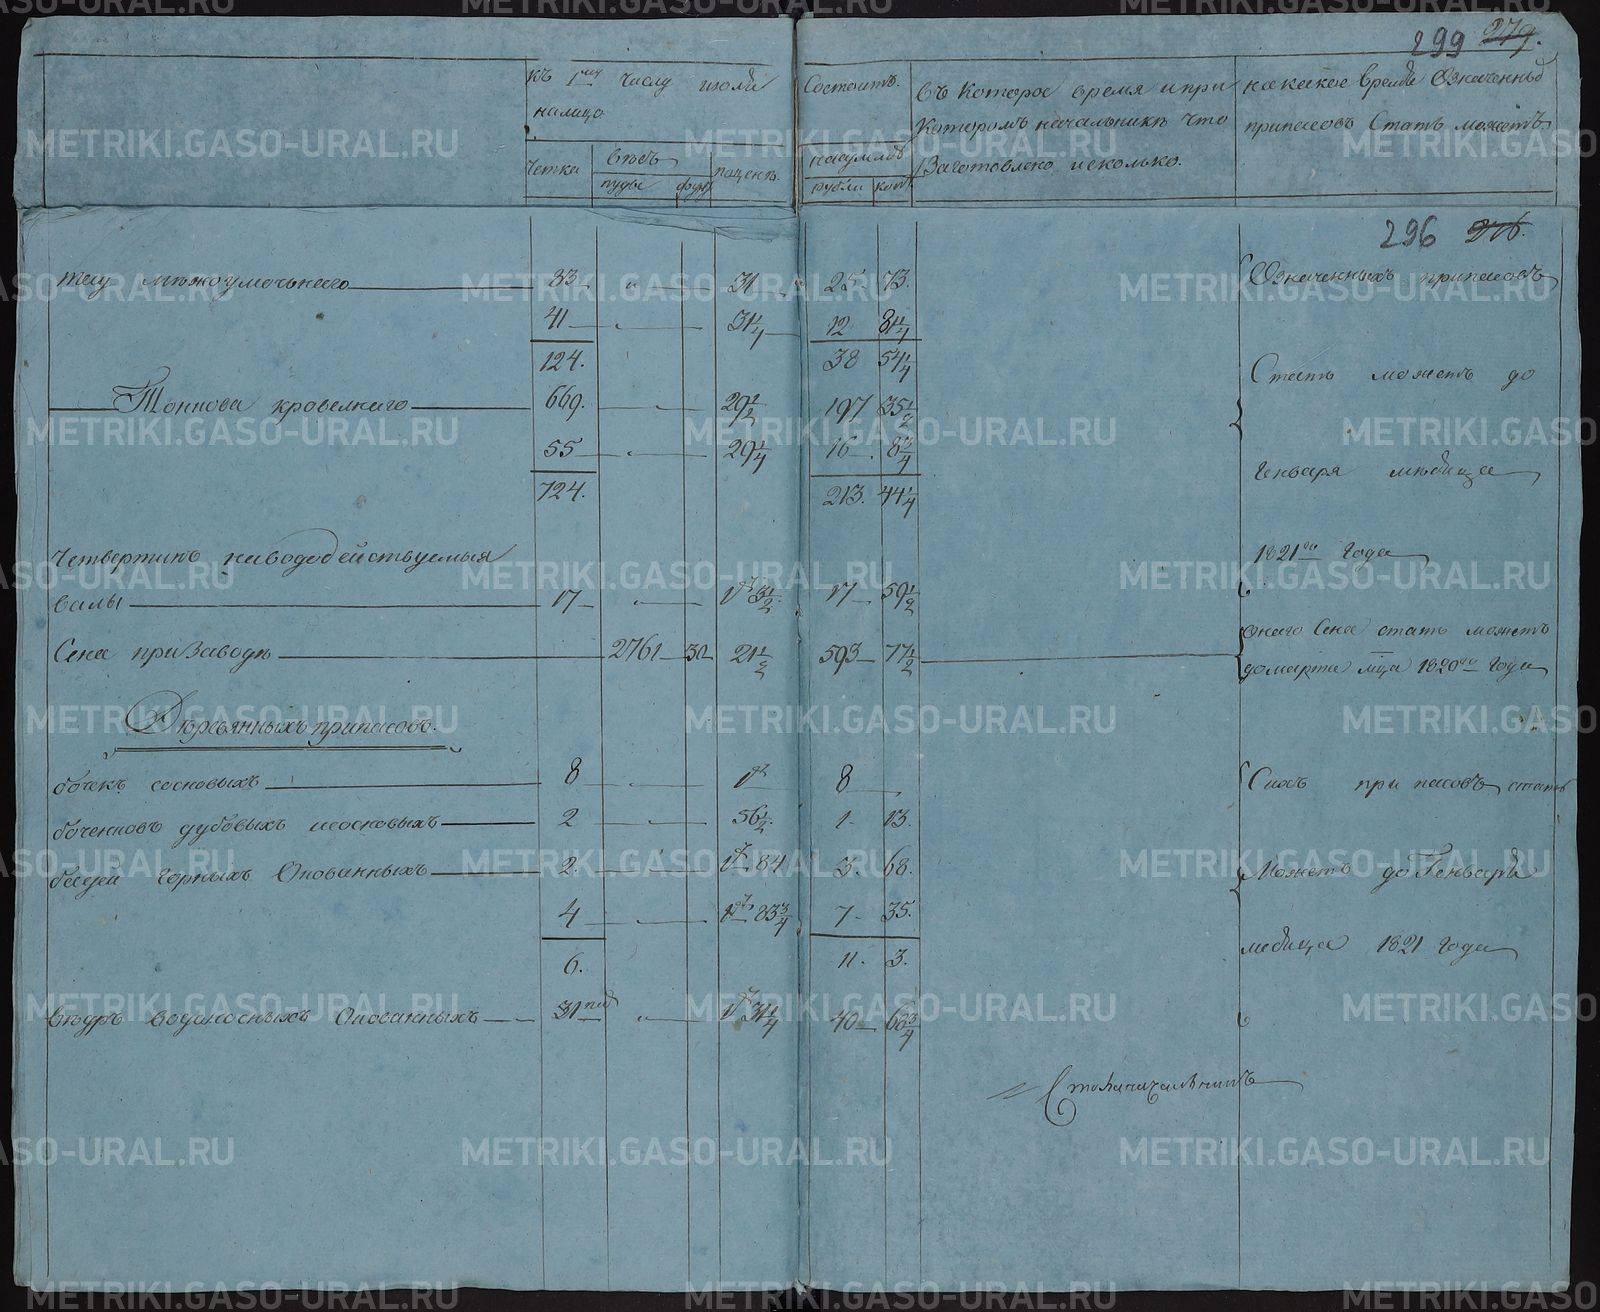 299 279.
къ 1му числу июля
налицо
Четка
весъ
пуды фун
поцене
Состоитъ.
насумму
рубли копе
Въ которое время и при
которомъ начальнике что
Заготовлено и сколько.
на какое время Означенныхъ
припасовъ Стать можетъ
296 276.
тесу 83 31 25 73.
41 31 1/4 12 81 1/4
124. 38 54 1/4
кровелнаго 669. 29 1/2 197 35 1/2
55 29 1/4 16 8 3/4
724. 213. 44 1/4
Четвертинъ навододействуемыя
валы 17 1р 3 1/2 17 59 1/2
Сена при Заводе 2761 30 21 1/2 593 77 1/2
Деревянныхъ припасовъ.
бочекъ сосновыхъ 8 1р 8
боченковъ дубовыхъ исосновыхъ 2 56 1/2 1 13.
бадей горныхъ Окованныхъ 2. 1р 84 3. 68.
4 1р 83 3/4 7 35.
6. 11. 3.
ведръ водоносныхъ Окованныхъ 31 1р 31 1/4 40 68 3/4
Означенныхъ припасовъ
Стать можетъ до
Генваря месяца
1821го Года
онаго Сена стать можетъ
до марта мца 1820го Года
Сихъ припасовъ стать
Можетъ до Генваря
месяца 1821 года
METRIKI.GASO-URAL.RU